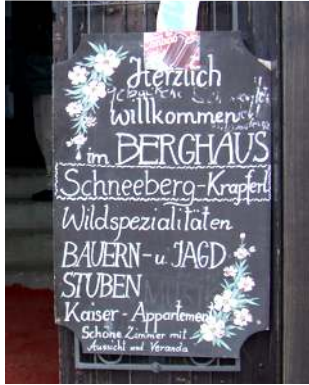 Herzlich
willkommen
im BERGHAUS
Schneeberg-Krapferl
Wildspezialitäten
BAUERN- u. JAGD
STUBEN
Kaiser-Appartement
Schöne Zimmer mit
Aussicht und Veranda